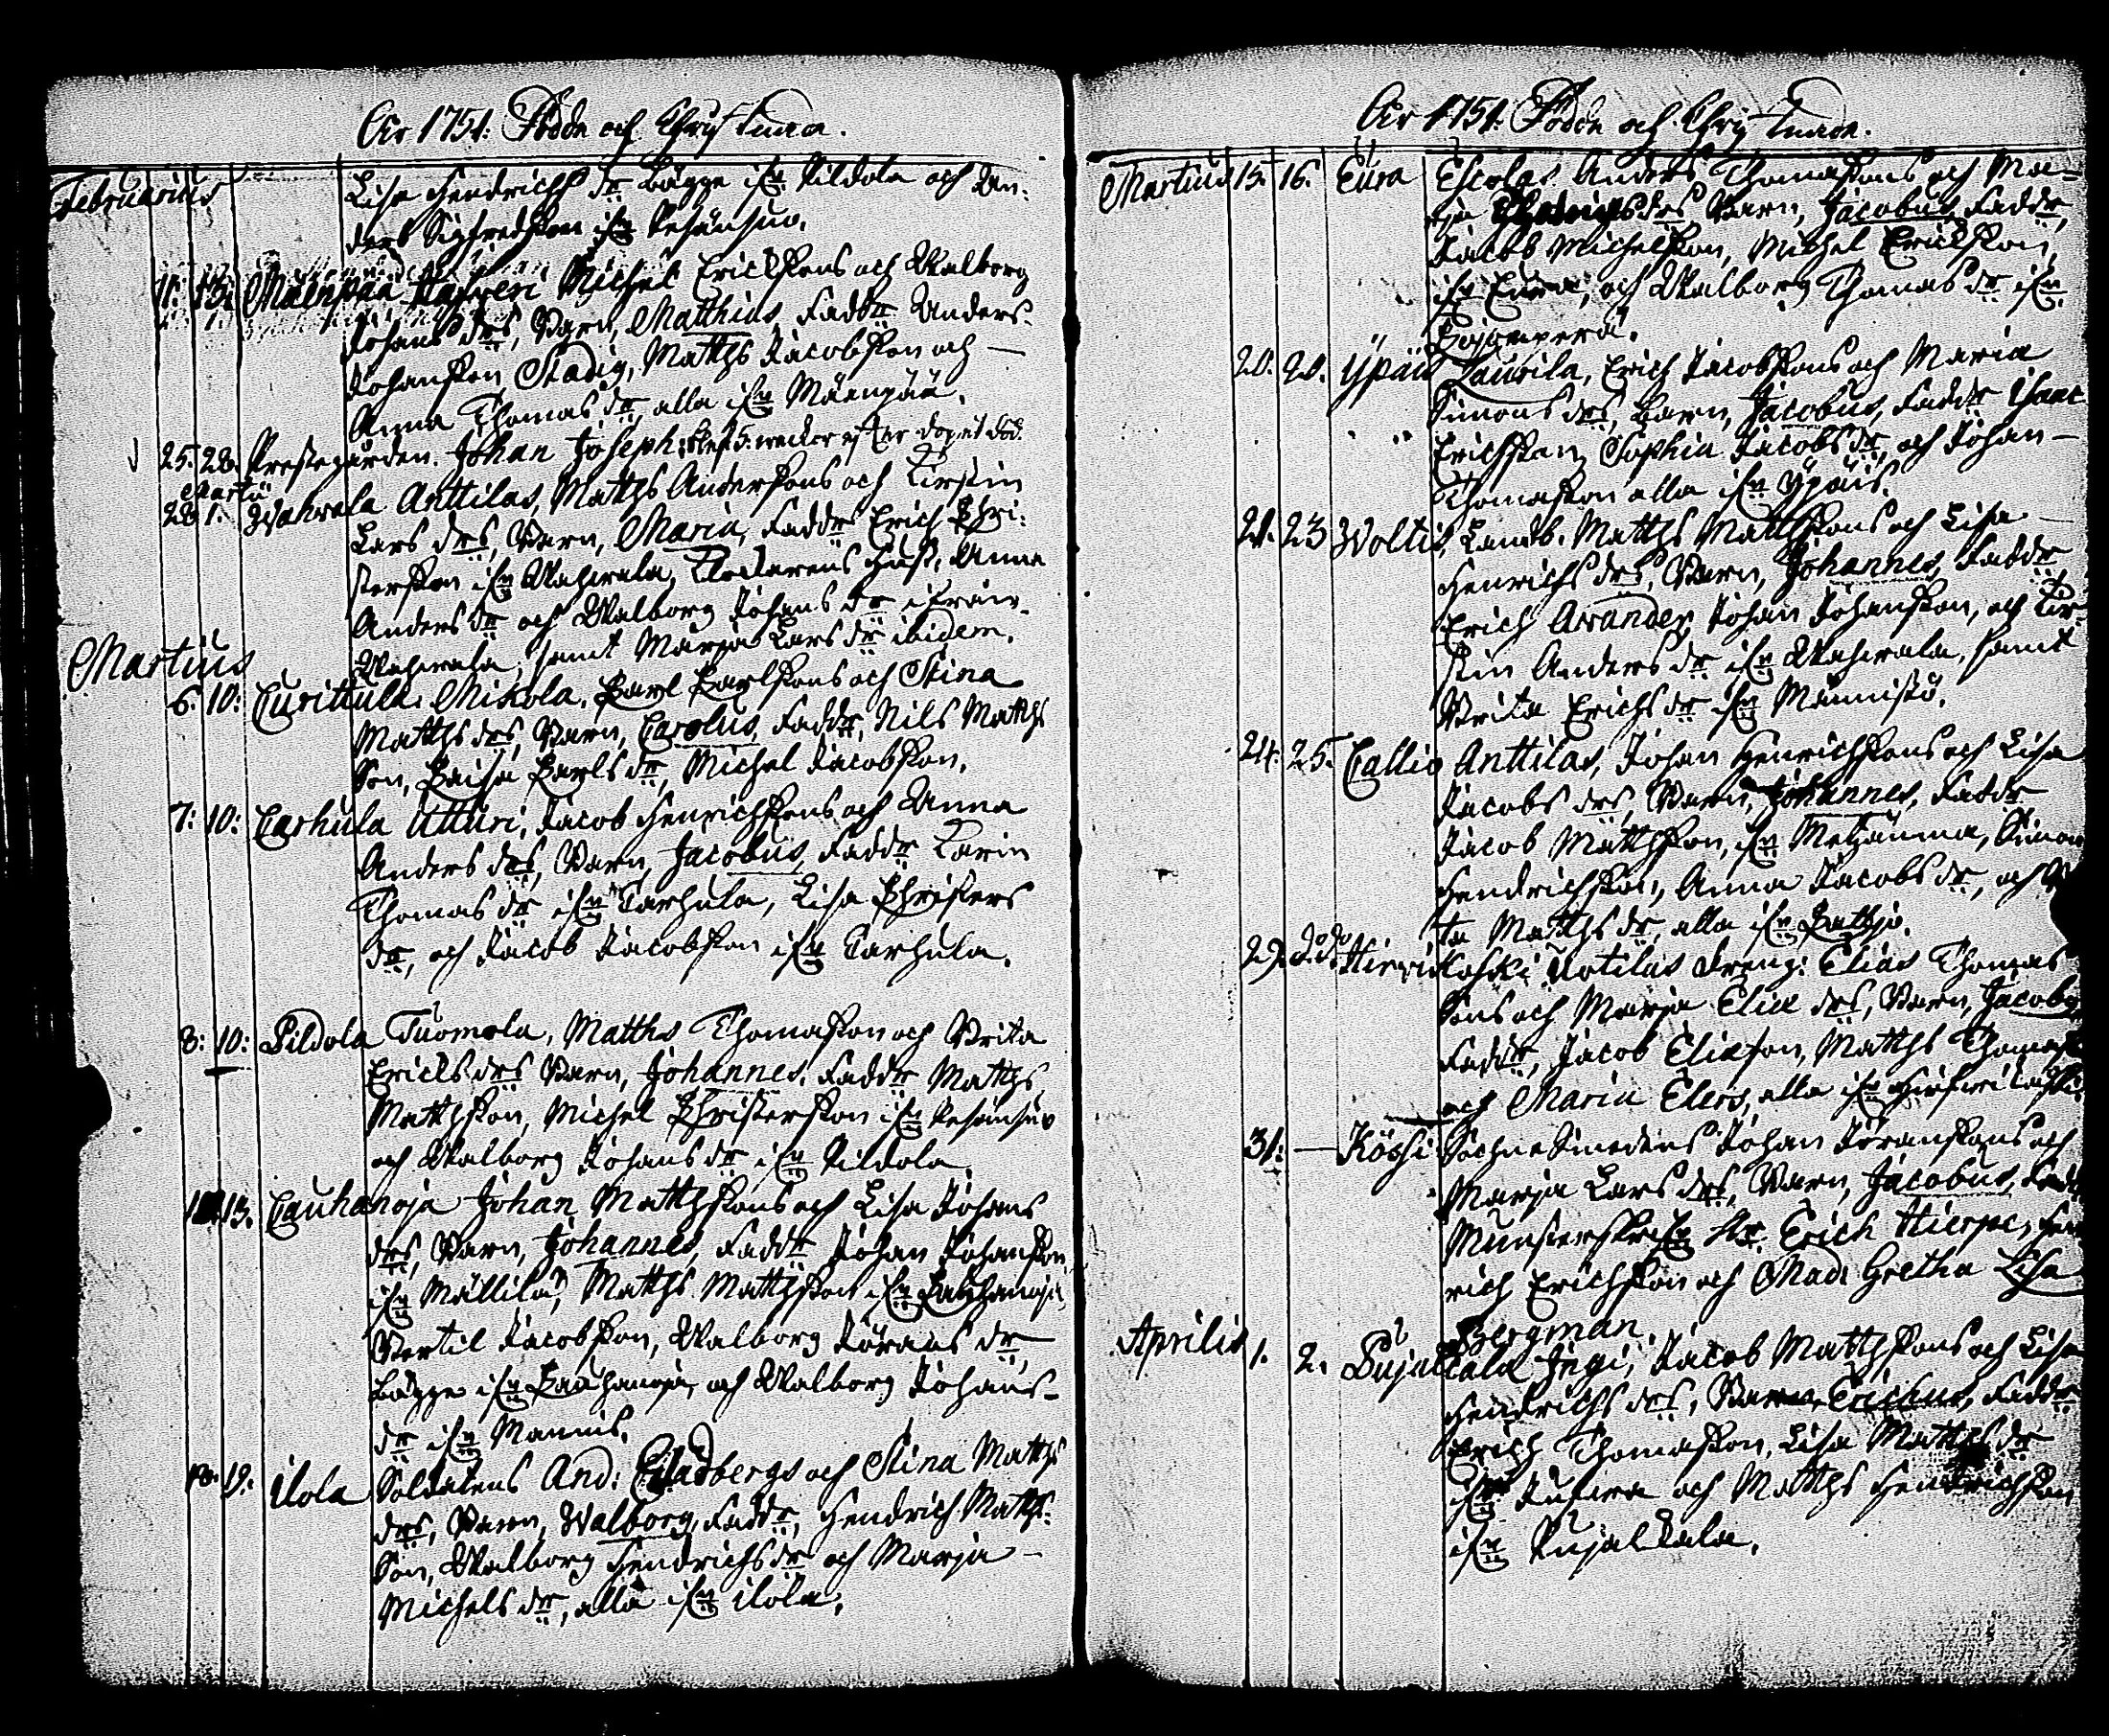 År 1751: Födde och Christnade.
Februarius
Lisa Hendrichs dr Bägge ifrn Pildola och An-
ders Sigfredsson ifrn
11. 13. Mäenpää Michel Erichssons och Walborg
Johans drs, Barn, Matthias, Faddr Anders
Johansson Stadig, Matths Jacobsson och
Anna Thomas dr, alla ifrn Mäenpää.
25. 28. Prestegården. Johan Joseph: blef 5. weckor efter dopet död.
Martii
28 1. Wahrala Anttilas, Matths Anderssons och Kirstin
Lars drs, Barn, Maria, Faddr Erich Chri-
stersson ifrn Wahrala, Klockarens Hust. Anna
Anders dr och Walborg Johans dr ifrån
Wahrala, samt Marja Lars dr ibidem.
Martius
6. 10: Curittula Mikola, Carl Carlssons och Stina
Matths drs, Barn, Carolus, Faddr, Nils Matths
Son, Caisa Carls dr, Michel Jacobsson.
7: 10: Carhula Utturi, Jacob Henrichssons och Anna
Anders drs, Barn, Jacobus, Faddr Karin
Thomas dr ifrn Carhula, Lisa Christers
dr, och Jacob Jacobsson ifrn Carhula.
8: 10: Pildola Tuomola, Matths Thomasson och Brita
Erichs drs Barn, Johannes, Faddr Matths
Matthsson, Michel Christersson ifrn
och Walborg Johans dr ifrn Pildola.
13. Cauhanoja Johan Matthssons och Lisa Johans
drs, Barn, Johannes, Faddr Johan Johansson
ifrn Mällilä, Matths Matthsson ifrn Cauhanoja,
Bertil Jacobsson, Walborg Jörans dr,
Bägge ifrn Cauhanoja, och Walborg Johans-
dr ifrn Mannis.
19: Ilola Soldatens And: och Stina Matths
drs, Barn, Walborg, Faddr, Hendrich Matths-
Son, Walborg Hendrichs dr och Marja
Michels dr, alla ifrn Ilola.
År 1751. Födde och Christnade.
Martius 15. 16. Eura Eskolas Anders Thomassons och Ma-
rja drs Barn, Jacobus, Faddr,
Jacob Michelsson, Michel Erichsson,
ifrn Eura, och Walborg Thomas dr ifrn
20. 20. Ypäis Laurila, Erich Jacobssons och Maria
Simons drs, Barn, Jacobus, Faddr Isaac
Erichsson, Sophia Jacobs dr, och Johan
Thomasson alla ifrn Ypäis.
21. 23 Woltis, Landb. Matths Matthssons och Lisa
Henrichs drs, Barn, Johannes, Faddr
Erich Arander, Johan Johansson, och Kir-
stin Anders dr ifrn Wahrala, samt
Brita Erichs dr ifrn Männistö.
24. 25. Callio Anttilas, Johan Henrichssons och Lisa
Jacobs drs, Barn, Johannes, Faddr
Jacob Matthsson, ifrn Metzänma, Simon
Hendrichsson, Anna Jacobs dr, och
ta Matths dr, alla ifrn
29. do do Hirvikoski Uotilas Dreng: Elias Thomas
Sons och Marja Eliæ drs, Barn, Jacobus
Faddr, Jacob Eliasson, Matths Thomass
och Maria Elers, alla ifrn Hirfwikoski.
31: — Köski Sochne Smedens Johan Jöranssons och
Marja Lars drs, Barn, Jacobus, Fadd
Munsterskrifn Hr. Erich Hierpe, Hen
rich Erichsson och Mad: Gretha Lisa
Bergman.
Aprilis 1. 2. Pujalkala Ingi, Jacob Matthssons och Lisa
Hendrichs drs, Barn, Erichus, Faddr
Erich Thomasson, Lisa Matths dr
ifrn och Matths Hendrichsson
ifrn Pujalkala.